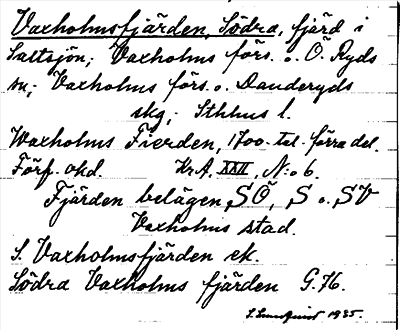 Vaxholmsfjärden, Södra, fjärd i
Saltsjön; Vaxholms förs. o. Ö. Ryds
sn; Vaxholms förs. o. Danderyds
skg; Sthlms l.
Waxholms Fierden, 1700-tal. förra del.
Förf. okd. Kr.A. XXII, N:o 6.
Fjärden belägen SÖ, S o. SV
Vaxholms stad.
S. Vaxholmsfjärden ek.
Södra Vaxholms fjärden G.
1935.